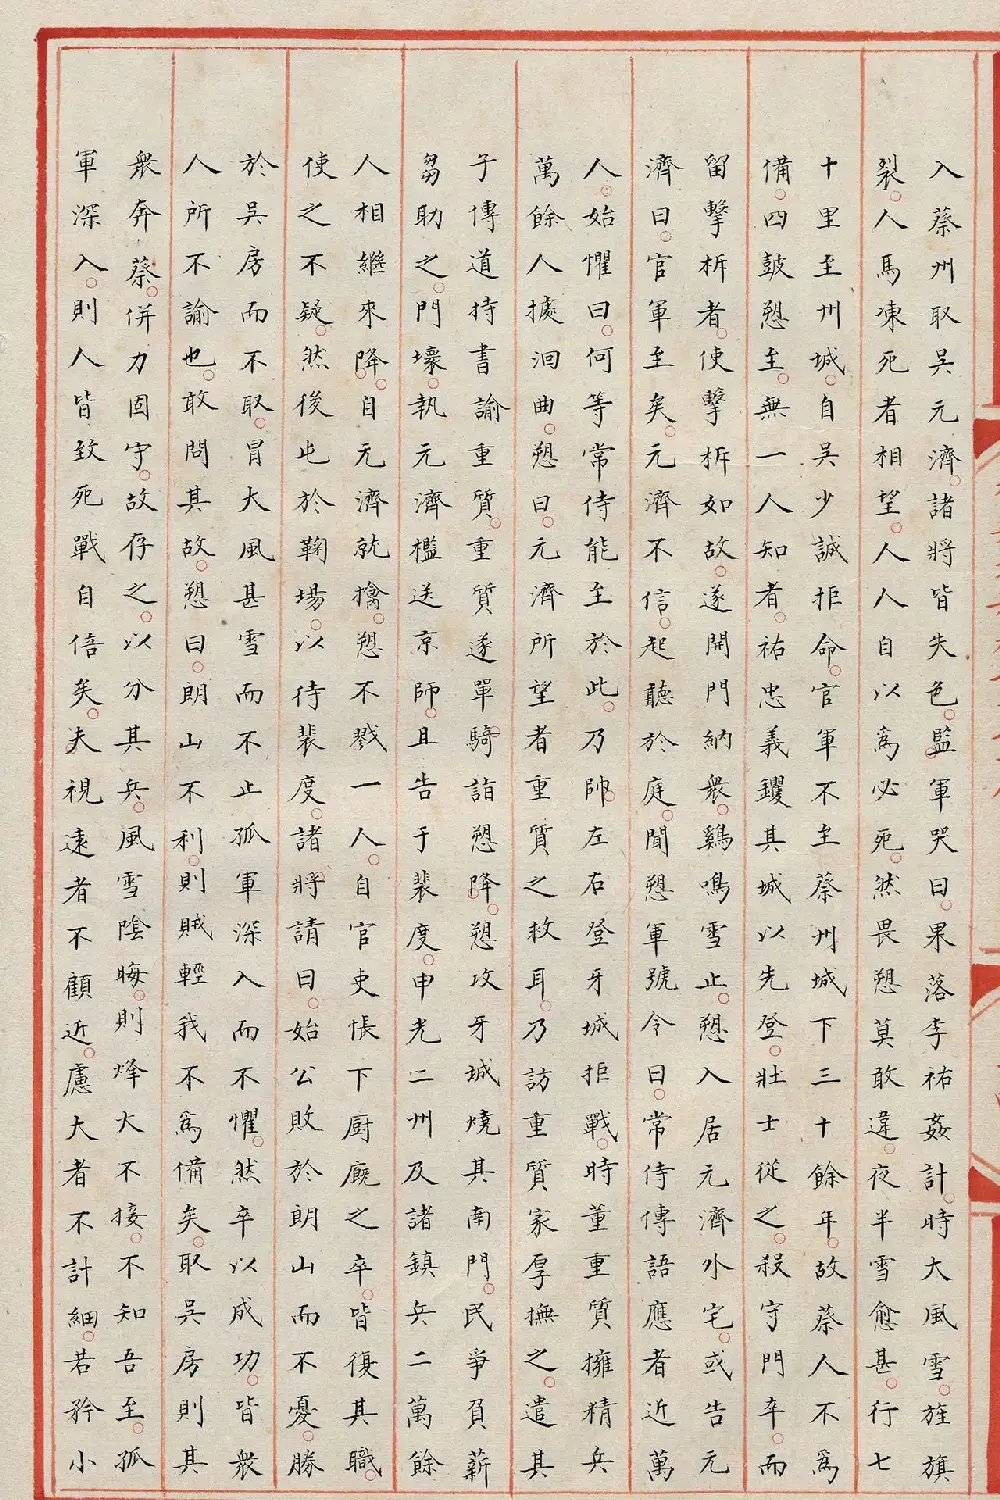 入蔡州取吳元濟。諸將皆失色。監軍哭曰。果落李祐姦計。時大風雪。旌旗
裂。人馬凍死者相望。人人自以為必死。然畏愬莫敢違。夜半雪愈甚。行七
十里至州城。自吳少誠拒命。官軍不至蔡州城下三十餘年。故蔡人不為
備。四鼓愬至。無一人知者。祐忠義钁其城以先登。壯士從之。殺守門卒。而
留擊柝者。使擊柝如故。遂開門納衆。鷄鳴雪止。愬入居元濟外宅。或告元
濟曰。官軍至矣。元濟不信。起聽於庭。聞愬軍號令曰。常侍傳語應者近萬
人。始懼曰。何等常侍能至於此。乃帥左右登牙城拒戰。時董重質擁精兵
萬餘人據洄曲。愬曰。元濟所望者重質之救耳。乃訪重質家厚撫之。遣其
子傳道持書諭重質。重質遂單騎詣愬降。愬攻牙城燒其南門。民爭負薪
芻助之。門壞。執元濟檻送京師。且告于裴度。申光二州及諸鎮兵二萬餘
人相繼來降。自元濟就擒。愬不戮一人。自官吏帳下厨廐之卒。皆復其職。
使之不疑。然後屯於鞠場。以待裴度。諸將請曰。始公敗於朗山而不憂。勝
於吳房而不取。冒大風甚雪而不止孤軍深入而不懼。然卒以成功。皆衆
人所不諭也。敢問其故。愬曰。朗山不利。則賊輕我不為備矣。取吳房則其
衆奔蔡。併力固守。故存之。以分其兵。風雪陰晦。則烽火不接。不知吾至。孤
軍深入。則人皆致死戰自倍矣。夫視遠者不顧近。慮大者不計細。若矜小